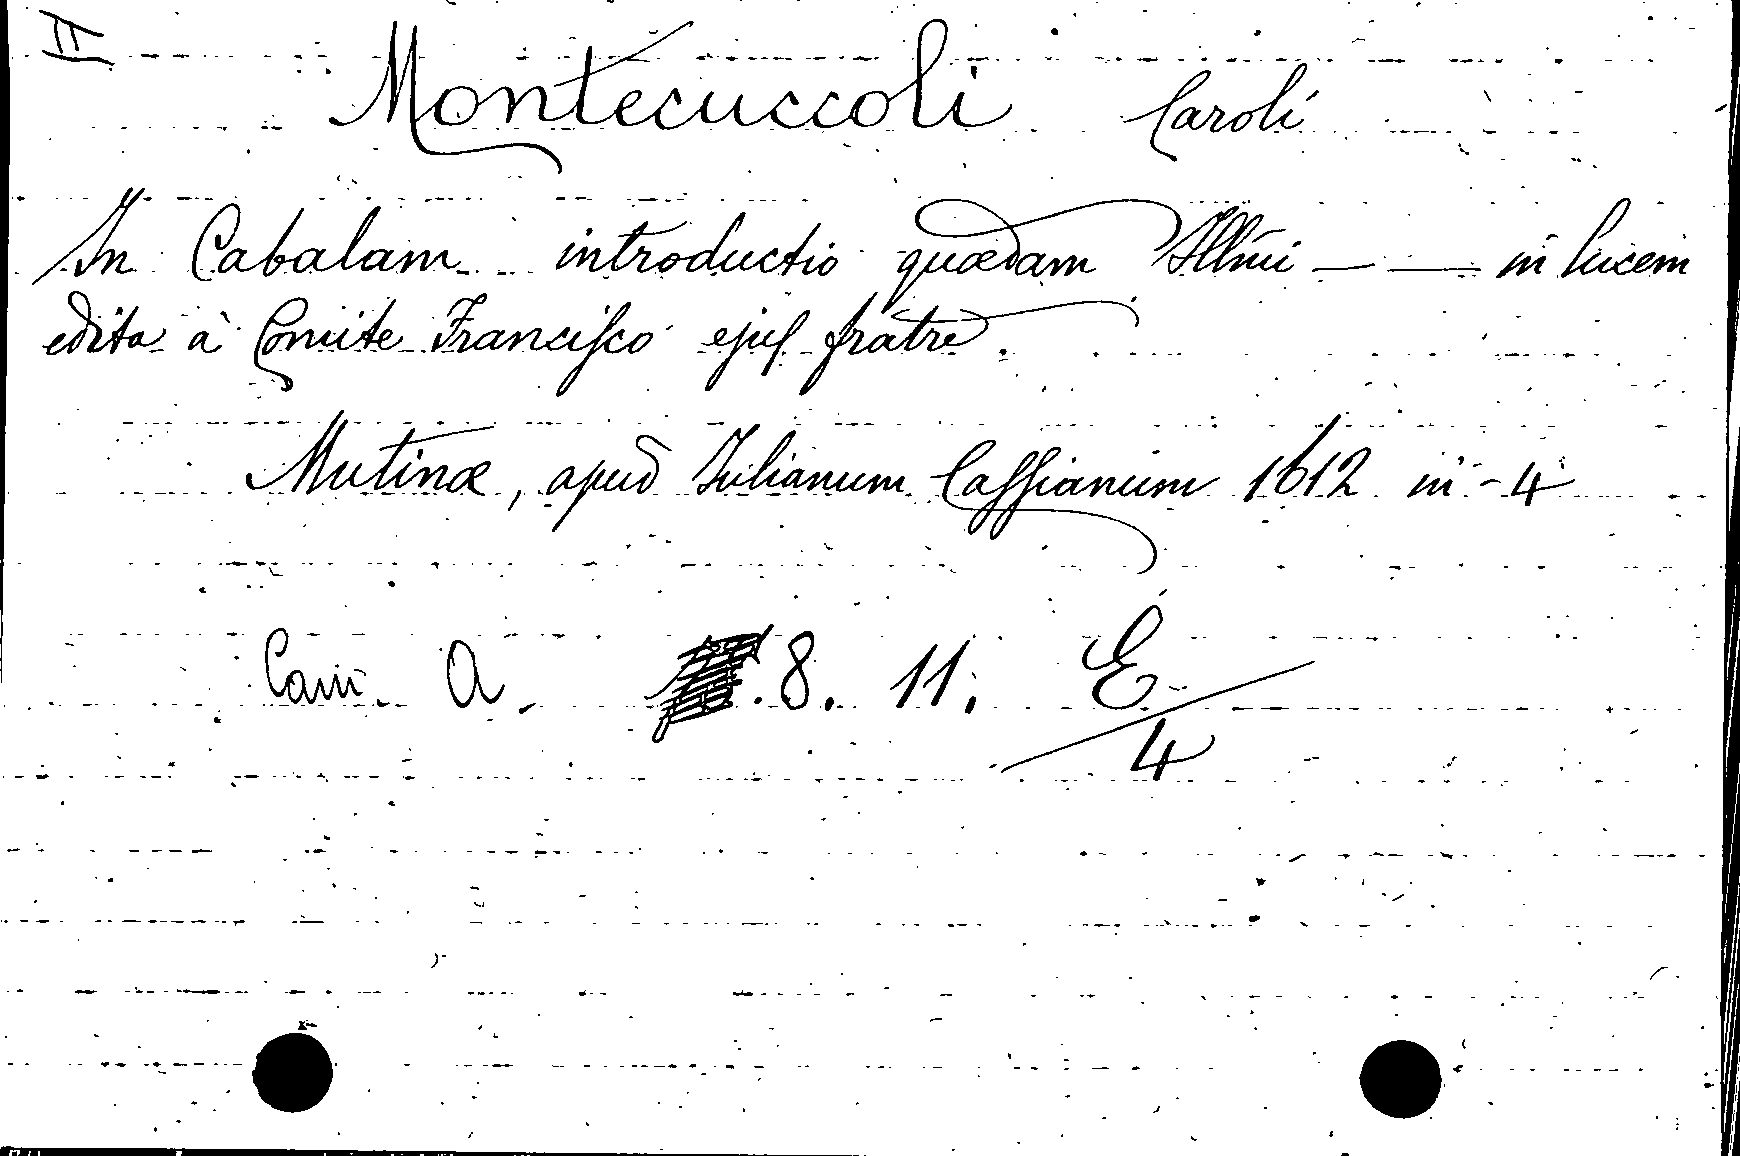 II
Montecuccoli Caroli
In Cabalam introductio quædam Illm̃i — — in lucem
edita à Comite Franciſco ejuſ fratre.
Mutinæ, apud Iulianum Caſſianum 1612 in-4
Cam. A. .8. 11. E/4